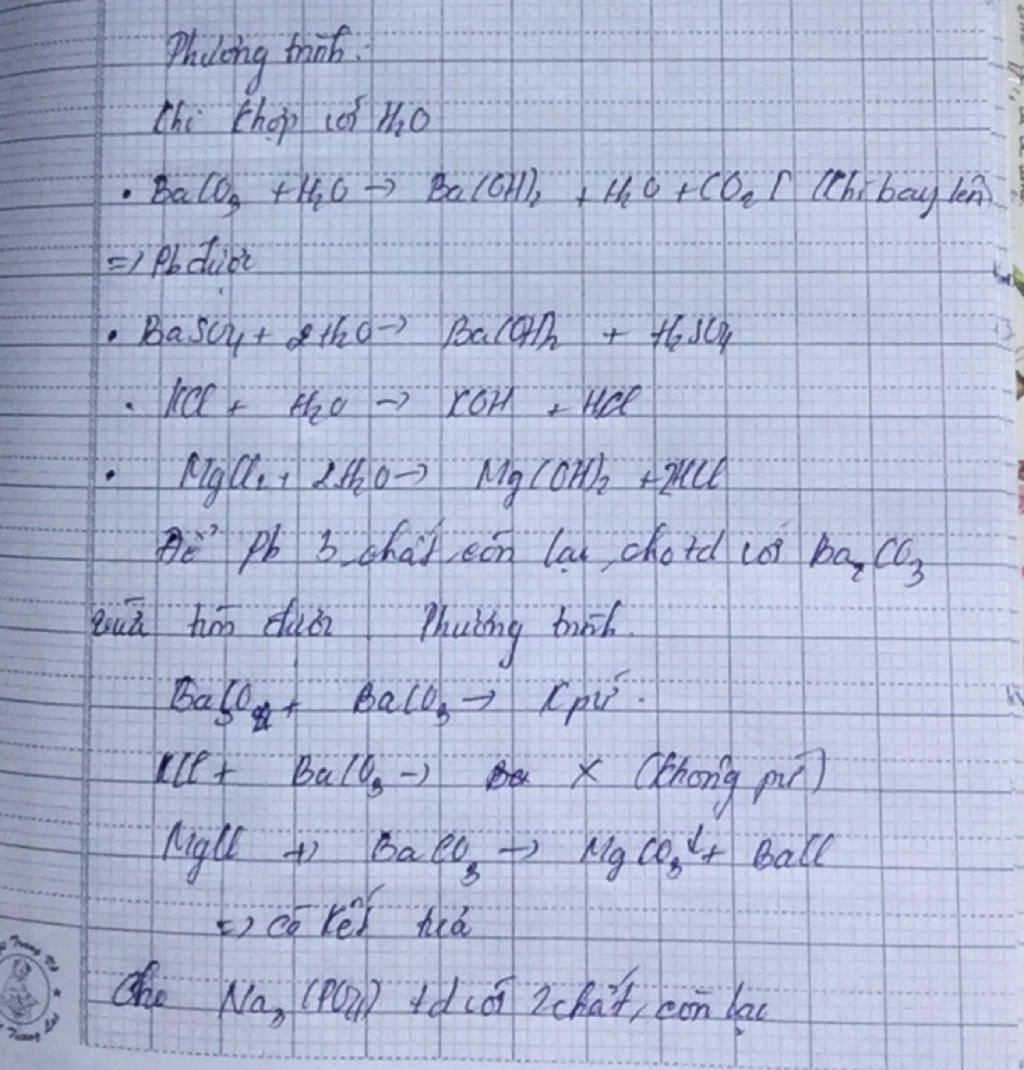 Phương trình:
Khi k hợp với H₂O
• BaCO₃ + H₂O → Ba(OH)₂ + H₂O + CO₂ ↑ (Khí bay lên)
=> Pb được
• BaSO₄ + 2H₂O → Ba(OH)₂ + H₂SO₄
• KCl + H₂O → KOH + HCl
• MgCl₂ + 2H₂O → Mg(OH)₂ + 2HCl
Để Pb 3 chất còn lại, cho td với Ba₂CO₃
vừa tìm được Phương trình.
BaSO₄ + BaCO₃ → K pứ.
KCl + BaCO₃ → X (không pứ)
MgCl + BaCO₃ → MgCO₃↓ + BaCl
=> có kết tủa
Cho Na₃(PO₄) td với 2 chất còn lại